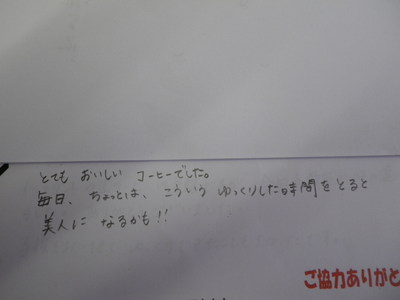 とても おいしい コーヒーでした。
毎日、ちょっとは、こういう ゆっくりした時間をとると
美人に なるかも!!
ご協力ありがと